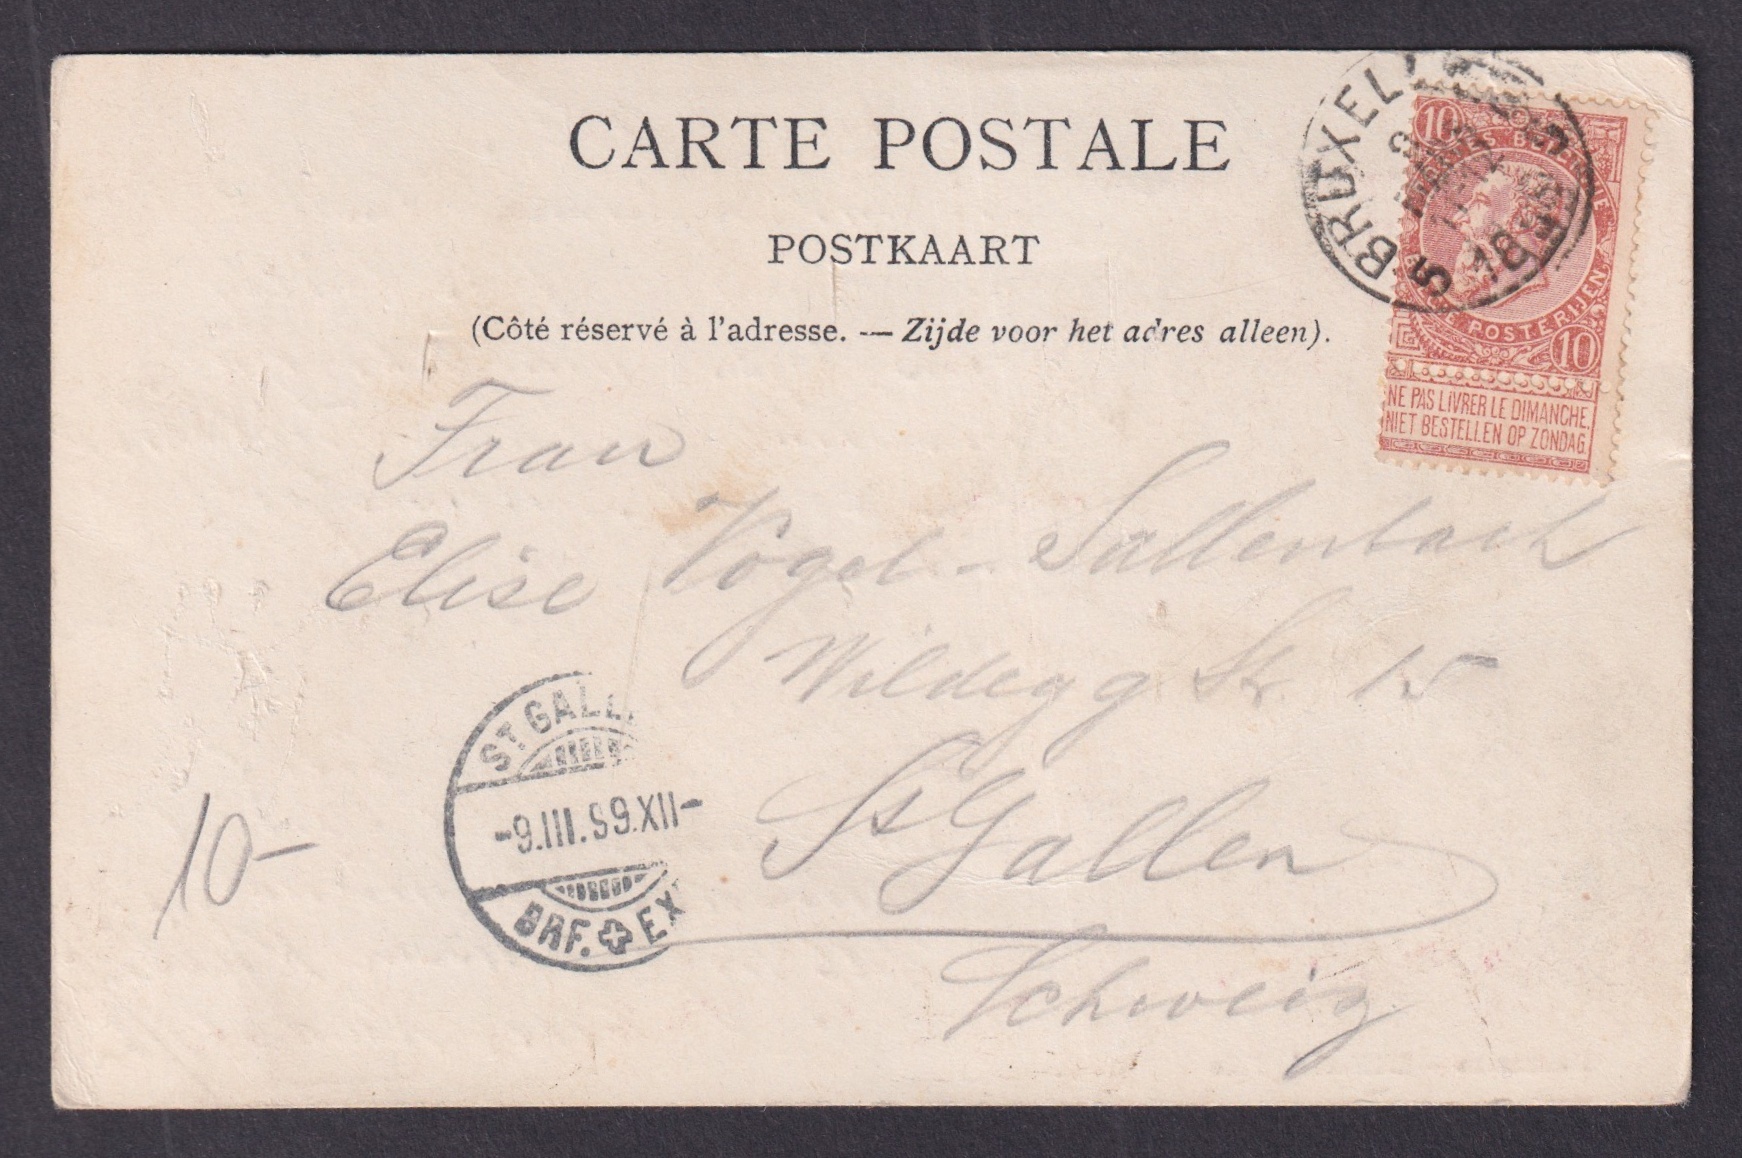 CARTE POSTALE
POSTKAART
(Côté réservé à l'adresse. — Zijde voor het adres alleen).
10 10
POSTERIJEN
10
NE PAS LIVRER LE DIMANCHE.
NIET BESTELLEN OP ZONDAG
BRUXELL
MARS
18
Frau
Elise Vogel-Sallenbach
Wildegg Str. 15
St Gallen
Schweiz
ST. GALL
-9.III.99.XII-
BRF. EX
10-